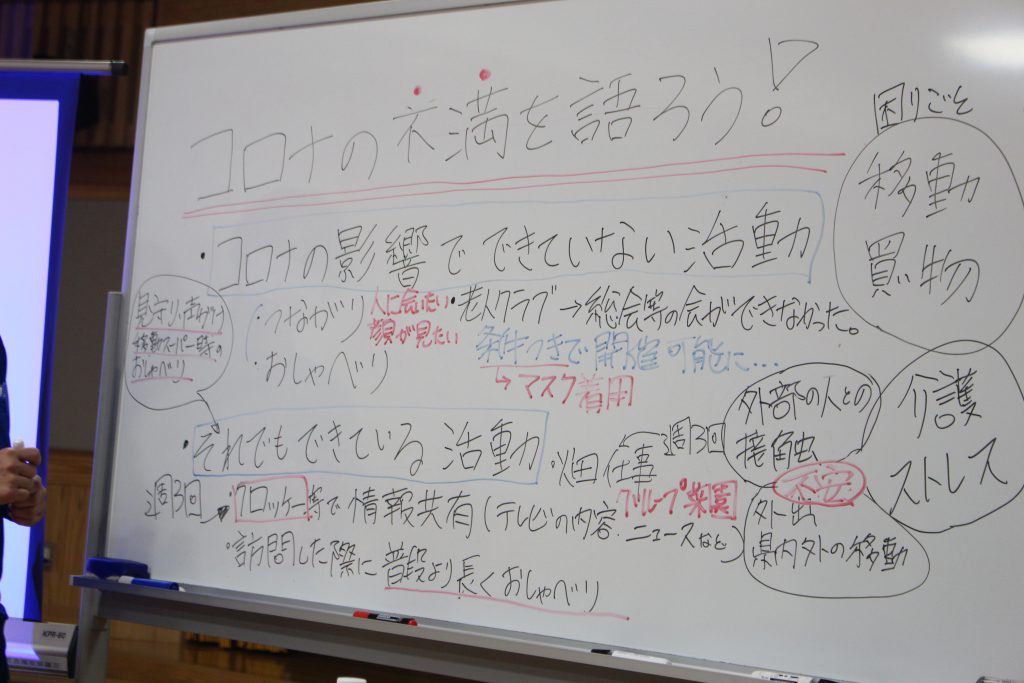 コロナの不満を語ろう!
・コロナの影響でできていない活動
・つながり
人に会いたい
顔が見たい
・おしゃべり
・老人クラブ→総会等の会ができなかった。
条件つきで開催可能に…
→マスク着用
見守り、声かけ
移動スーパー時の
おしゃべり
・それでもできている活動
・畑仕事
週3回
週3回
・クロッケー等で情報共有(テレビの内容
ニュースなど)
グループ菜園
・訪問した際に普段より長くおしゃべり
困りごと
移動
買い物
介護
ストレス
外部の人との
接触
不安
外出
県内外の移動
KPR-80